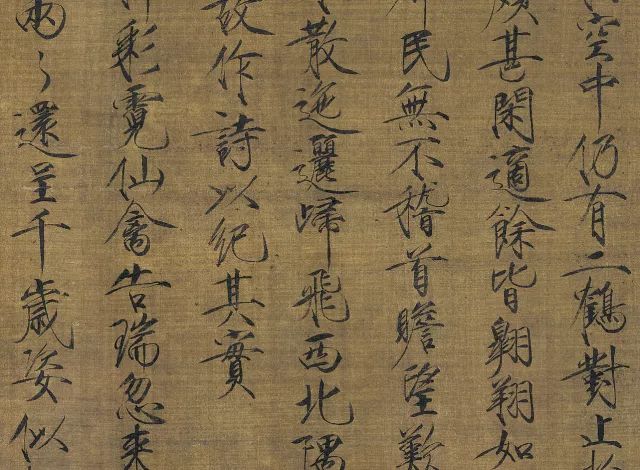 空中仍有二鶴對止
頗甚閑適餘皆翱翔如
民無不稽首瞻望歎
散迤邐歸飛西北隅
故作詩以紀其實
彩霓仙禽告瑞忽來
兩〻還呈千歲姿似